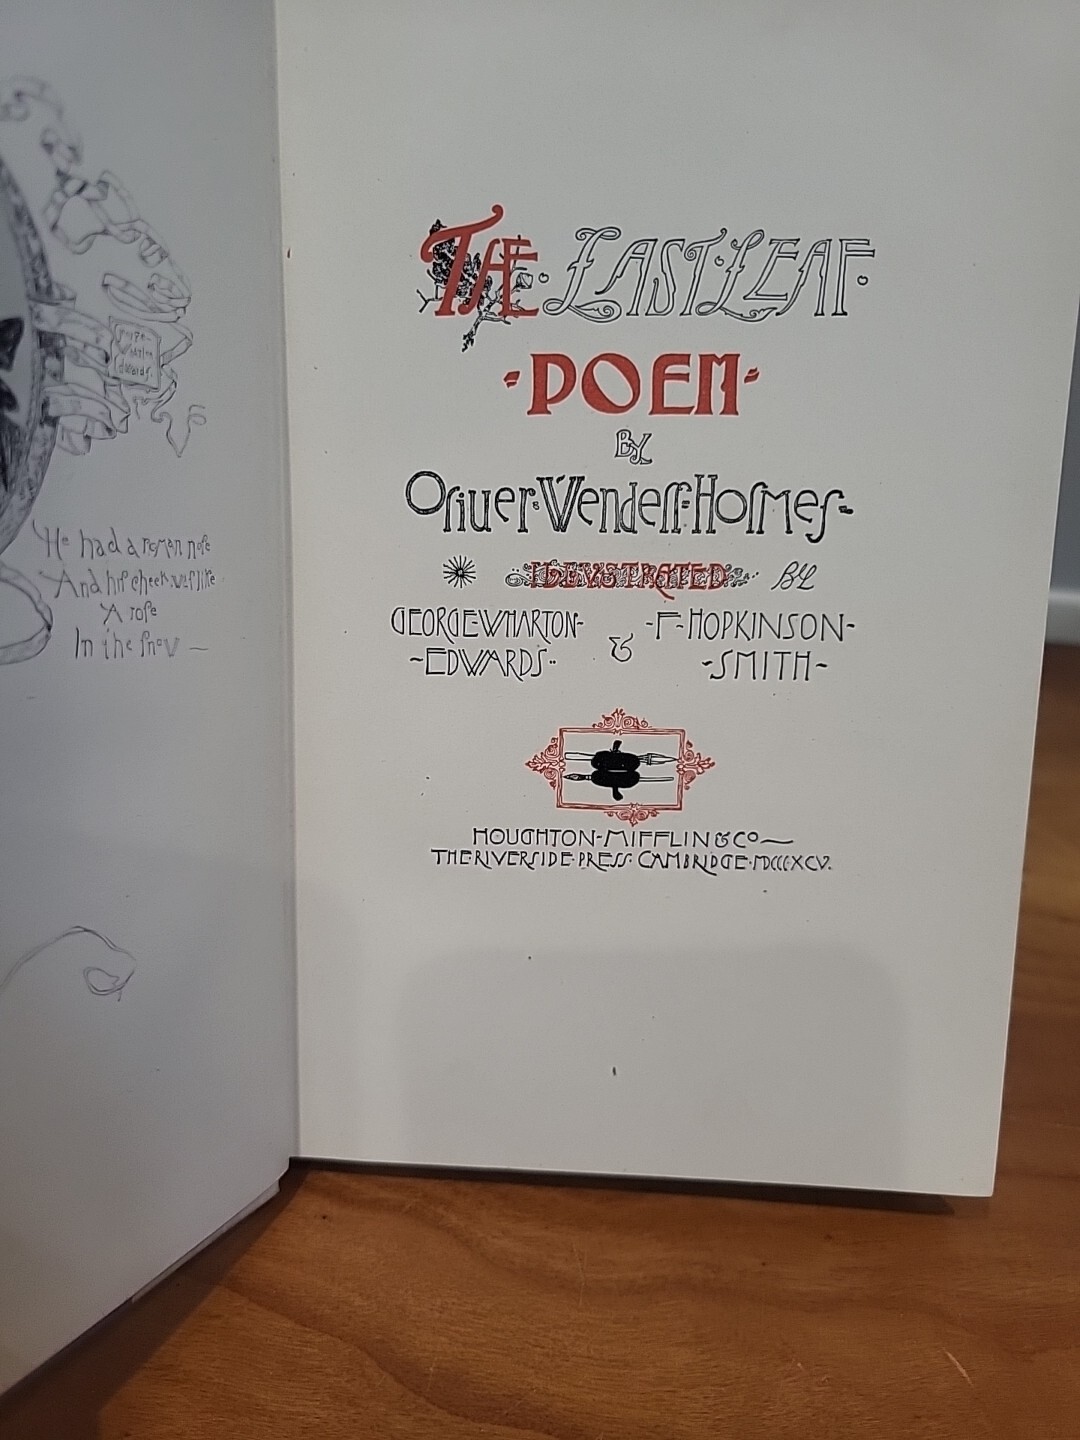 George
Wharton
Edwards.
He had a roman nose
And his cheek was like
A rose
In the snow —
THE · LAST · LEAF ·
· POEM ·
BY
Oliver · Wendell · Holmes -
ILLUSTRATED BY
GEORGE WHARTON - & - F - HOPKINSON -
~ EDWARDS ·· - SMITH ~
HOUGHTON - MIFFLIN & CO —
THE · RIVERSIDE · PRESS · CAMBRIDGE · MDCCCXCV.